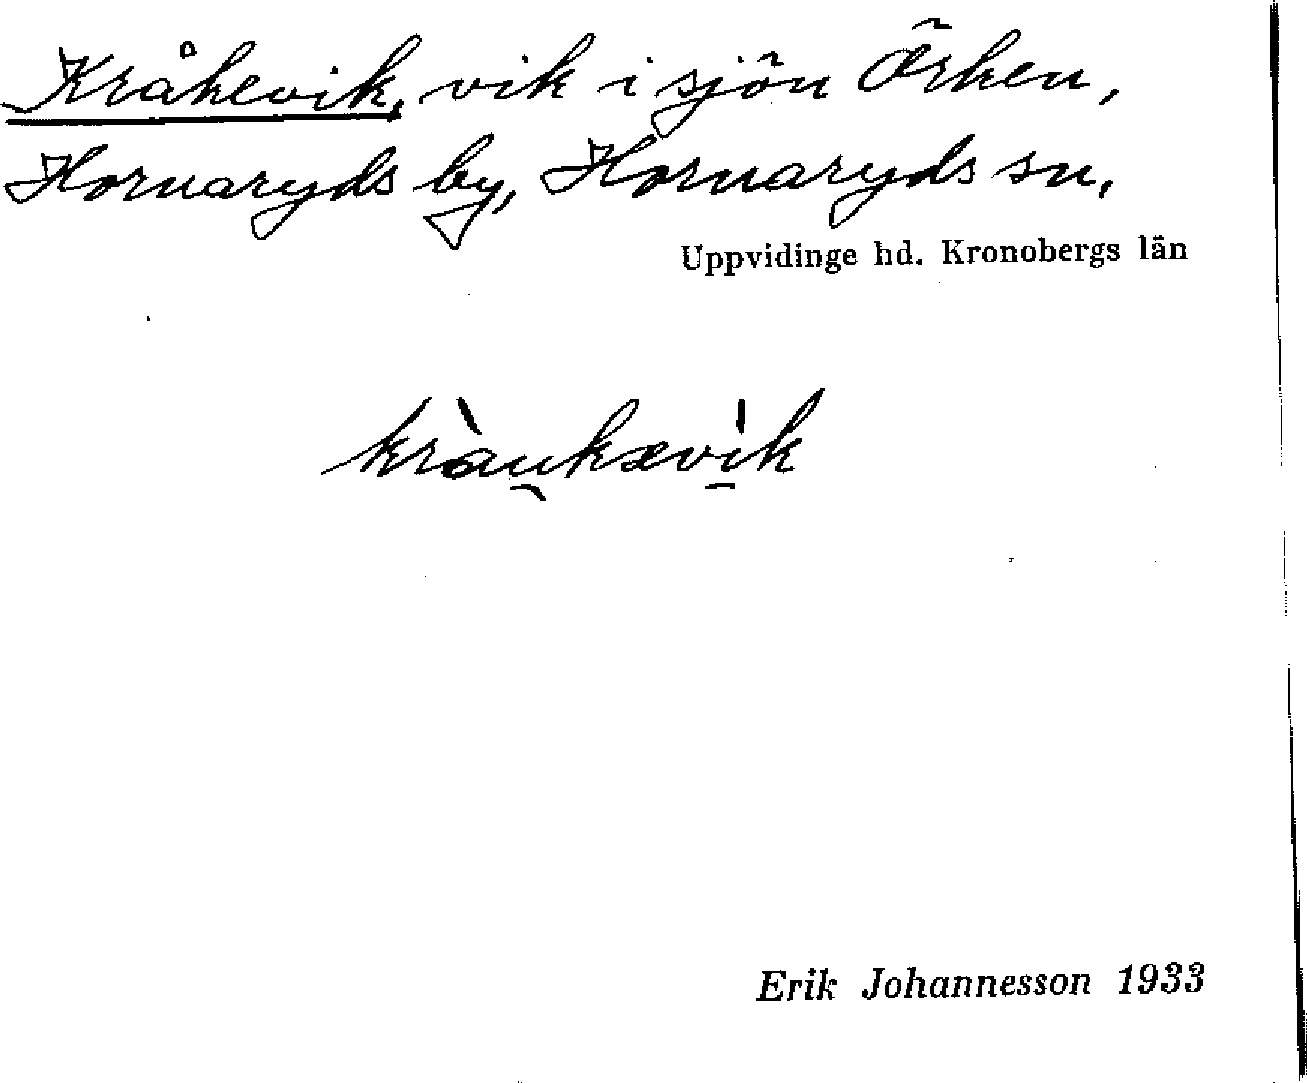 Kråkevik, vik i sjön Örken,
Hornaryds by, Hornaryds sn,
Uppvidinge hd. Kronobergs län
kràu̯kævìk
Erik Johannesson 1933